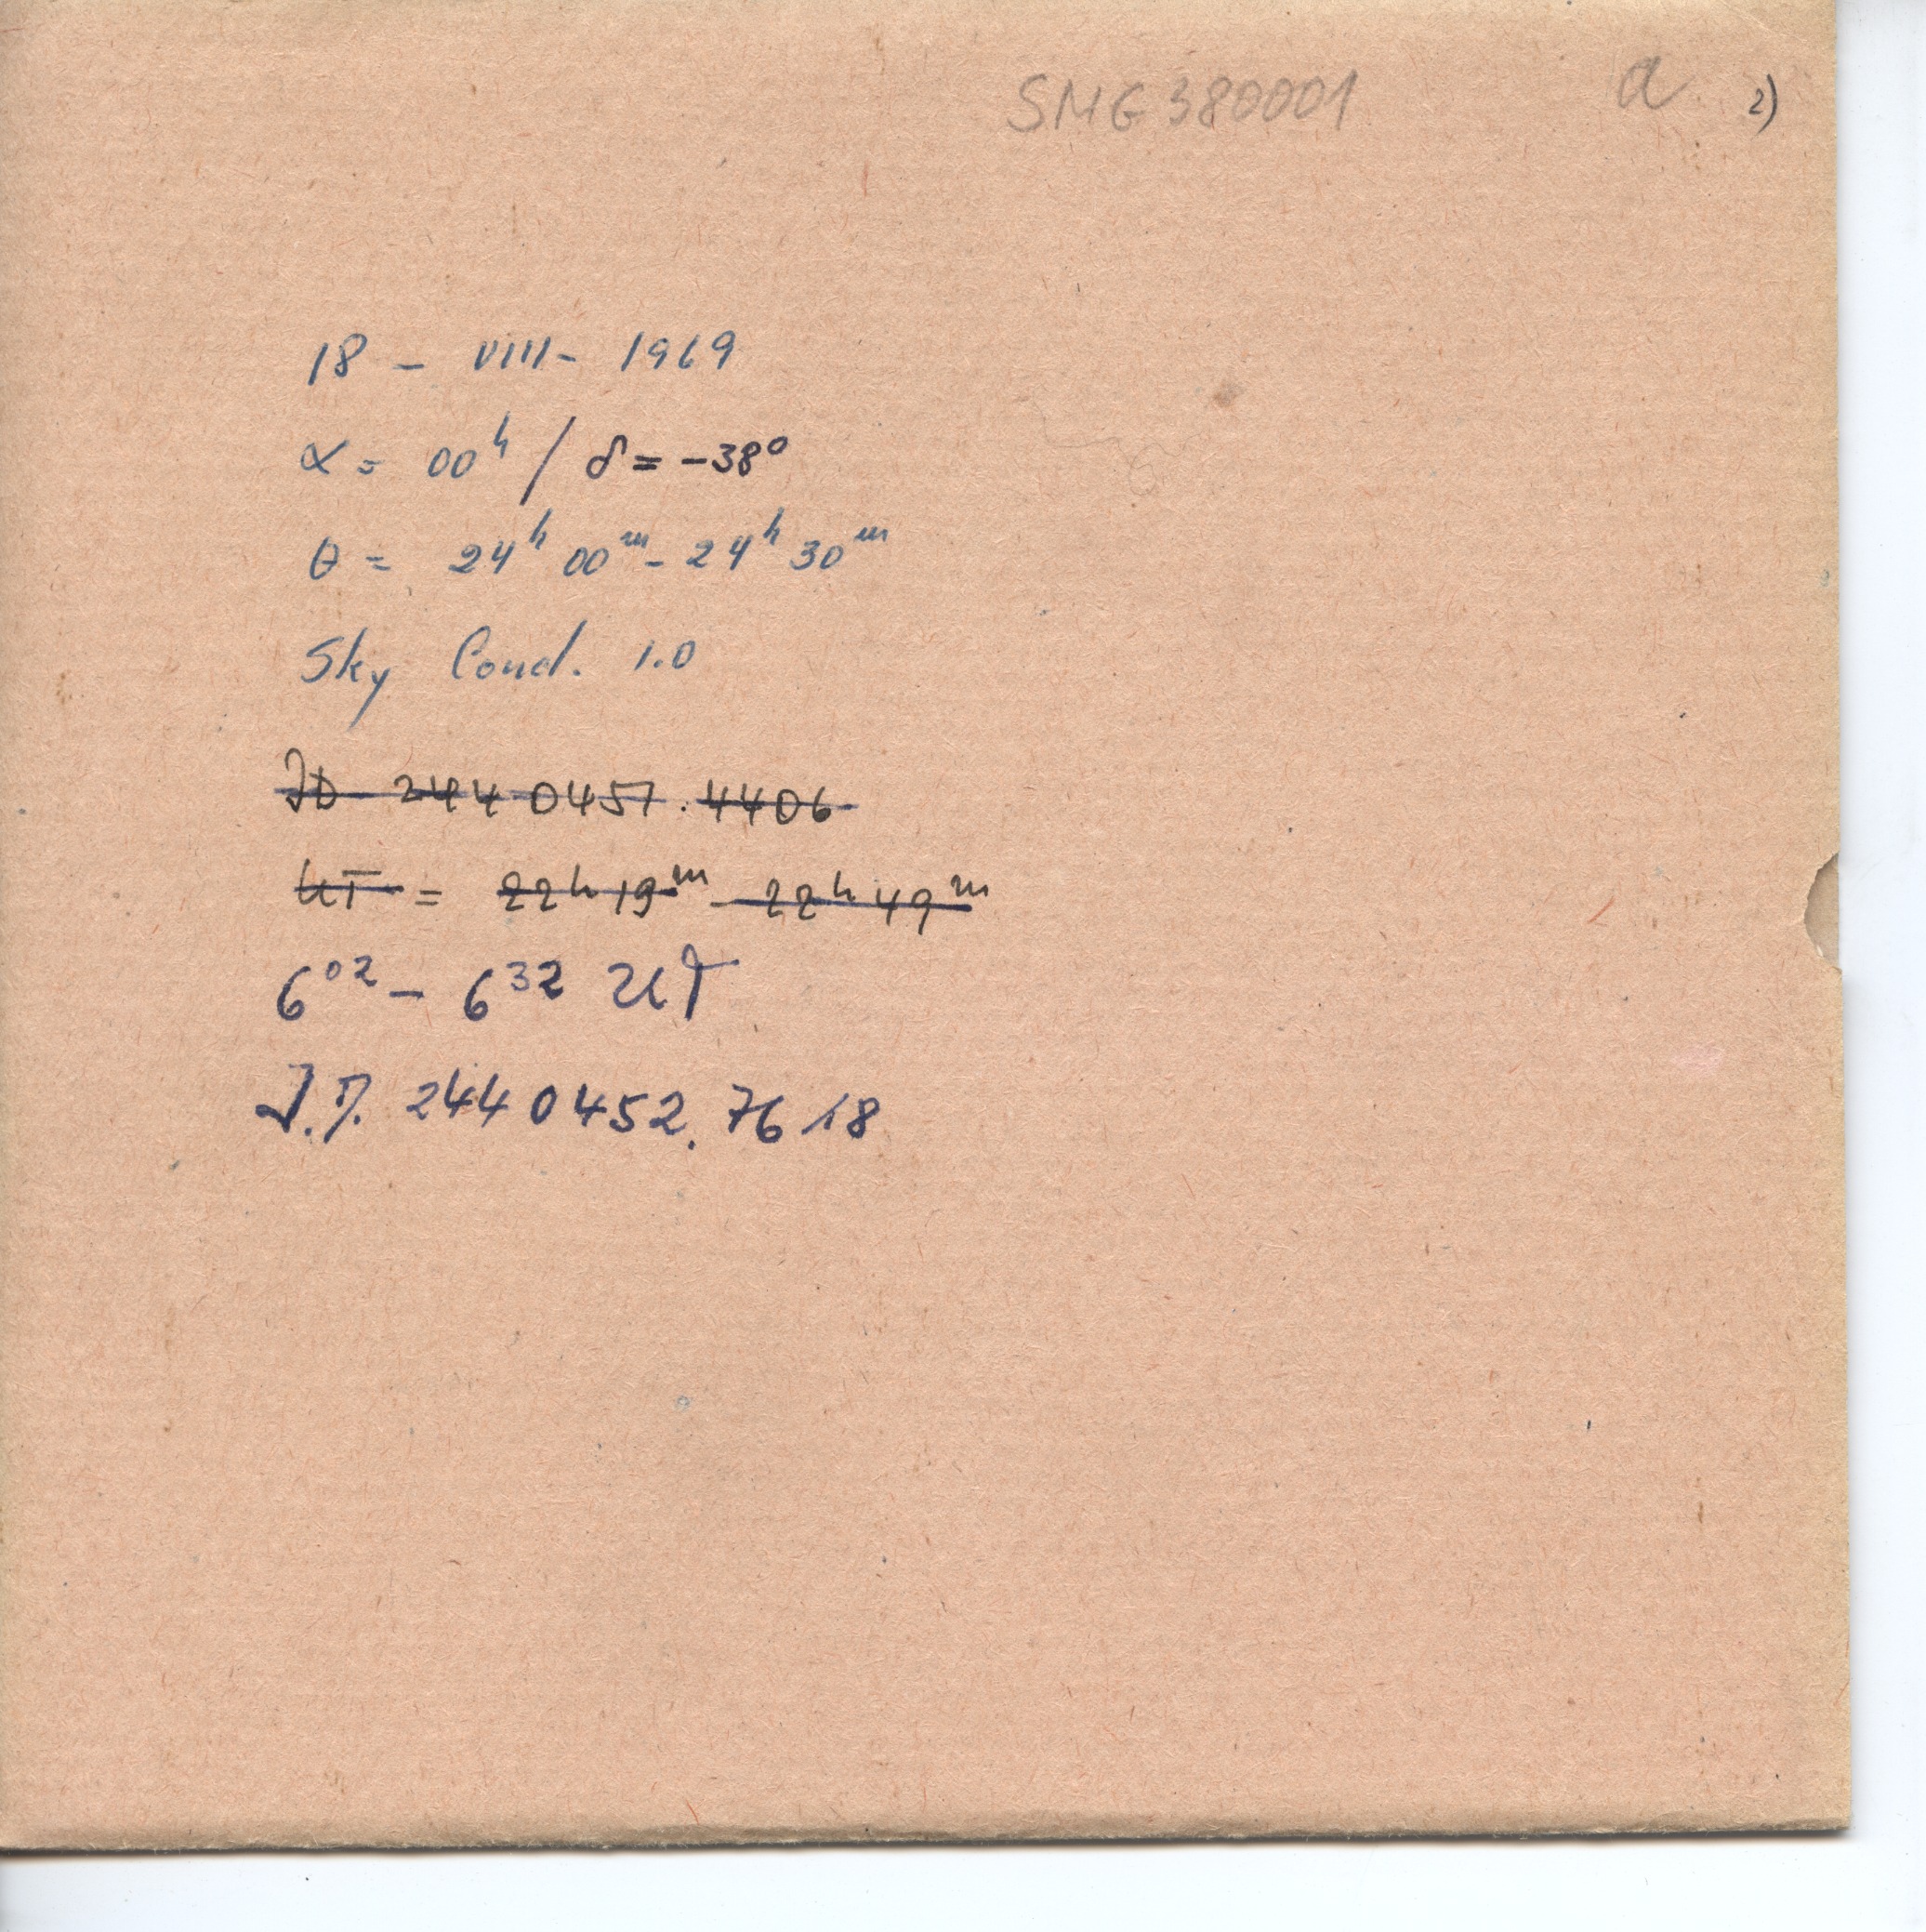 SMG380001 a 2)
18 - VIII - 1969
α = 00ʰ / δ = -38°
θ = 24ʰ 00ᵐ - 24ʰ 30ᵐ
Sky Cond. 1.0
JD 244 0451.4406
UT = 22ʰ 19ᵐ - 22ʰ 49ᵐ
6⁰² - 6³² UT
J.D. 244 0452.7618